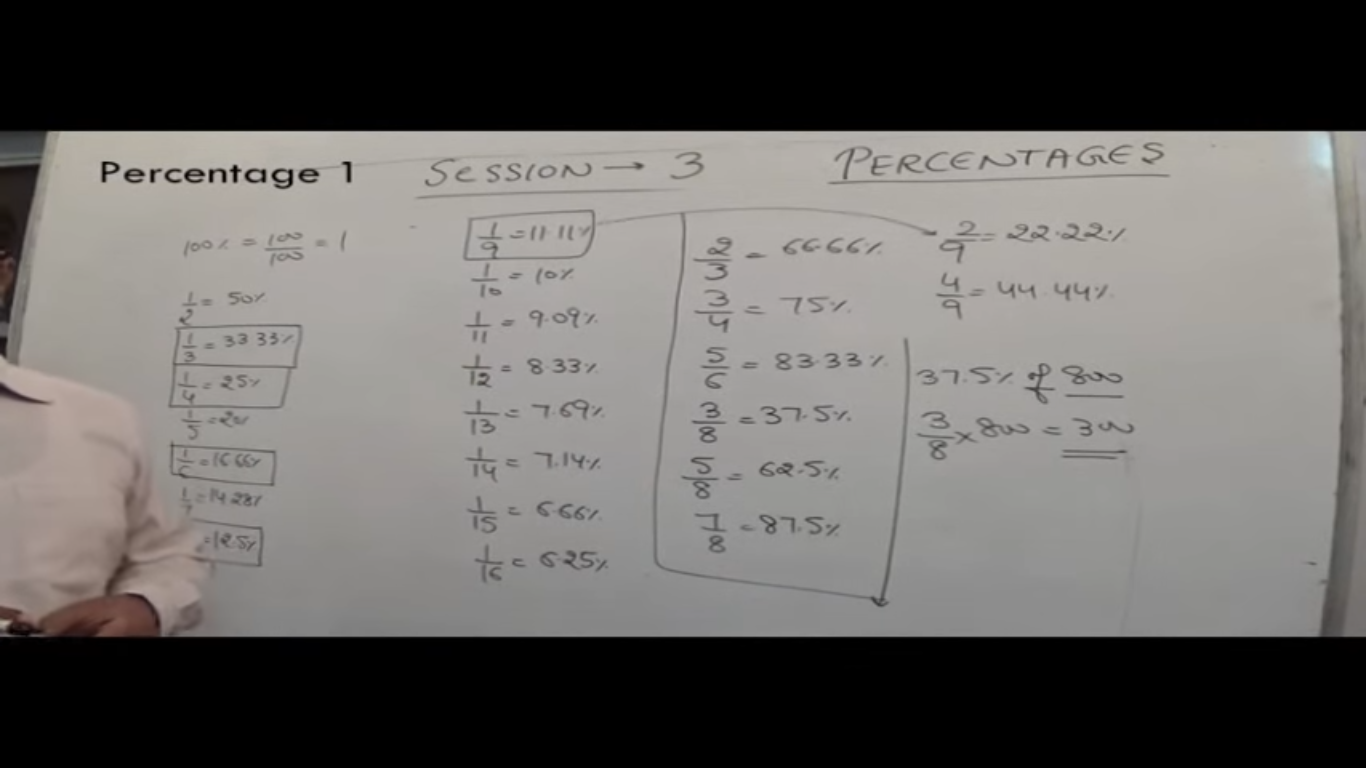 Percentage 1
SESSION → 3
PERCENTAGES
100% = 100/100 = 1
1/2 = 50%
1/3 = 33.33%
1/4 = 25%
1/5 = 20%
1/6 = 16.66%
1/7 = 14.28%
= 12.5%
1/9 = 11.11%
1/10 = 10%
1/11 = 9.09%
1/12 = 8.33%
1/13 = 7.69%
1/14 = 7.14%
1/15 = 6.66%
1/16 = 6.25%
2/3 = 66.66%
3/4 = 75%
5/6 = 83.33%
3/8 = 37.5%
5/8 = 62.5%
7/8 = 87.5%
2/9 = 22.22%
4/9 = 44.44%
37.5% of 800
3/8 × 800 = 300